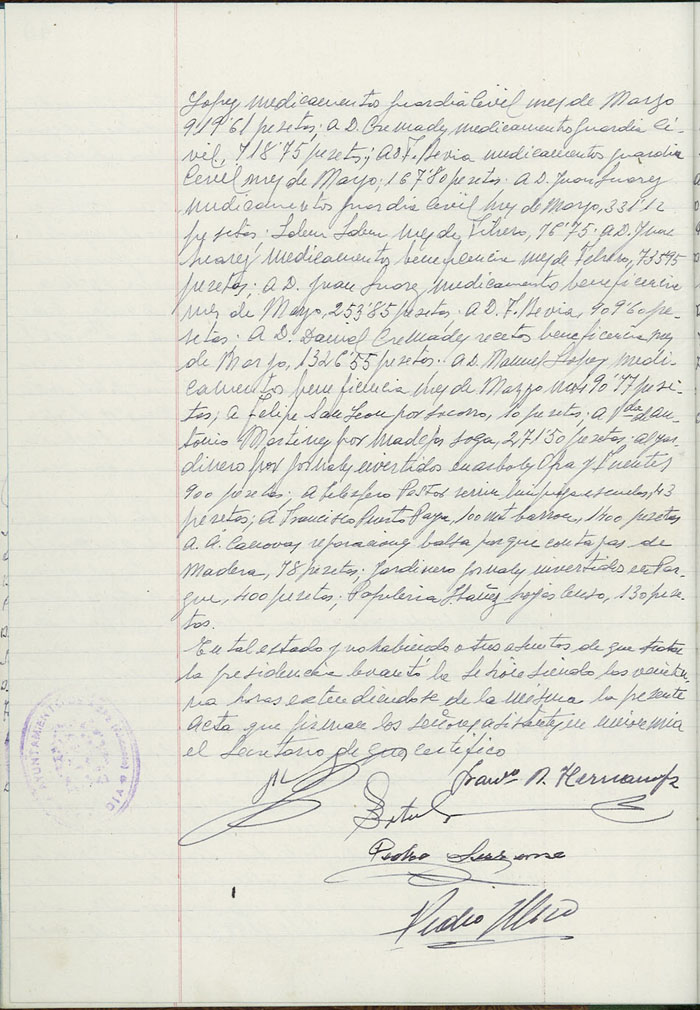 Lopez medicamentos guardia Civil mes de Marzo
919'61 pesetas; a D. Cremades medicamentos guardia Ci-
vil, 718'75 pesetas; a D. F. Bevia medicamentos guardia
Civil mes de Marzo, 167'80 pesetas. a D. Juan Suarez
medicamentos guardia Civil mes de Marzo, 331'12
pesetas. Idem Idem mes de Febrero, 76'75. a D. Juan
Suarez medicamentos beneficencia mes de Febrero, 735'95
pesetas; a D. Juan Suarez medicamentos beneficencia
mes de Marzo, 253'85 pesetas. a D. F. Bevia, 909'60 pe-
setas. a D. Daniel Cremades recetas beneficencia mes
de Marzo, 1326'55 pesetas. a D. Manuel Lopez medi-
camentos beneficencia mes de Marzo 90'77 pese-
tas; a Felipe San Leon por socorro, 10 pesetas; a Vda de An-
tonio Martinez por madejas soga, 271'50 pesetas; al jar-
dinero por jornales invertidos en arboles y Fuentes
900 pesetas; a Telesforo Pastor limpieza escuelas, 43
pesetas; A Francisco Puerto Paya, 100 mt 1400 pesetas
a A. Canovas reparaciones balsa parque con tapas de
Madera, 78 pesetas; Jardinero jornales invertidos en Par-
que, 400 pesetas; Papeleria Ibañez hojas Censo, 130 pese-
tas.
En tal estado y no habiendo otros asuntos de que tratar
la presidencia levantó la sesión siendo las veintiu-
na horas extendiendose de la misma la presente
Acta que firman los señores asistentes
el Secretario de que certifico
Franco A. Hernandez
Pedro
Pedro
AYUNTAMIENTO DE